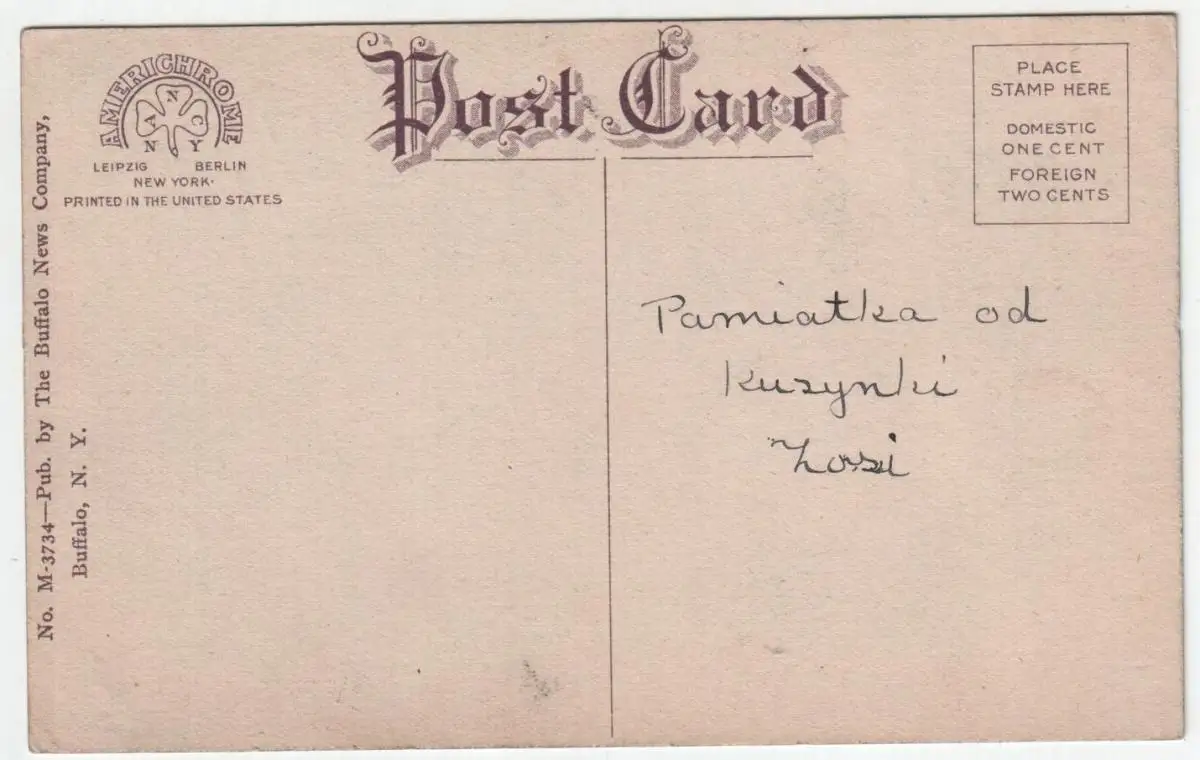 AMERICHROME
A N C
N Y
LEIPZIG BERLIN
NEW YORK.
PRINTED IN THE UNITED STATES
No. M-3734—Pub. by The Buffalo News Company,
Buffalo, N. Y.
Post Card
PLACE
STAMP HERE
DOMESTIC
ONE CENT
FOREIGN
TWO CENTS
Pamiatka od
Kuzynki
Zosi